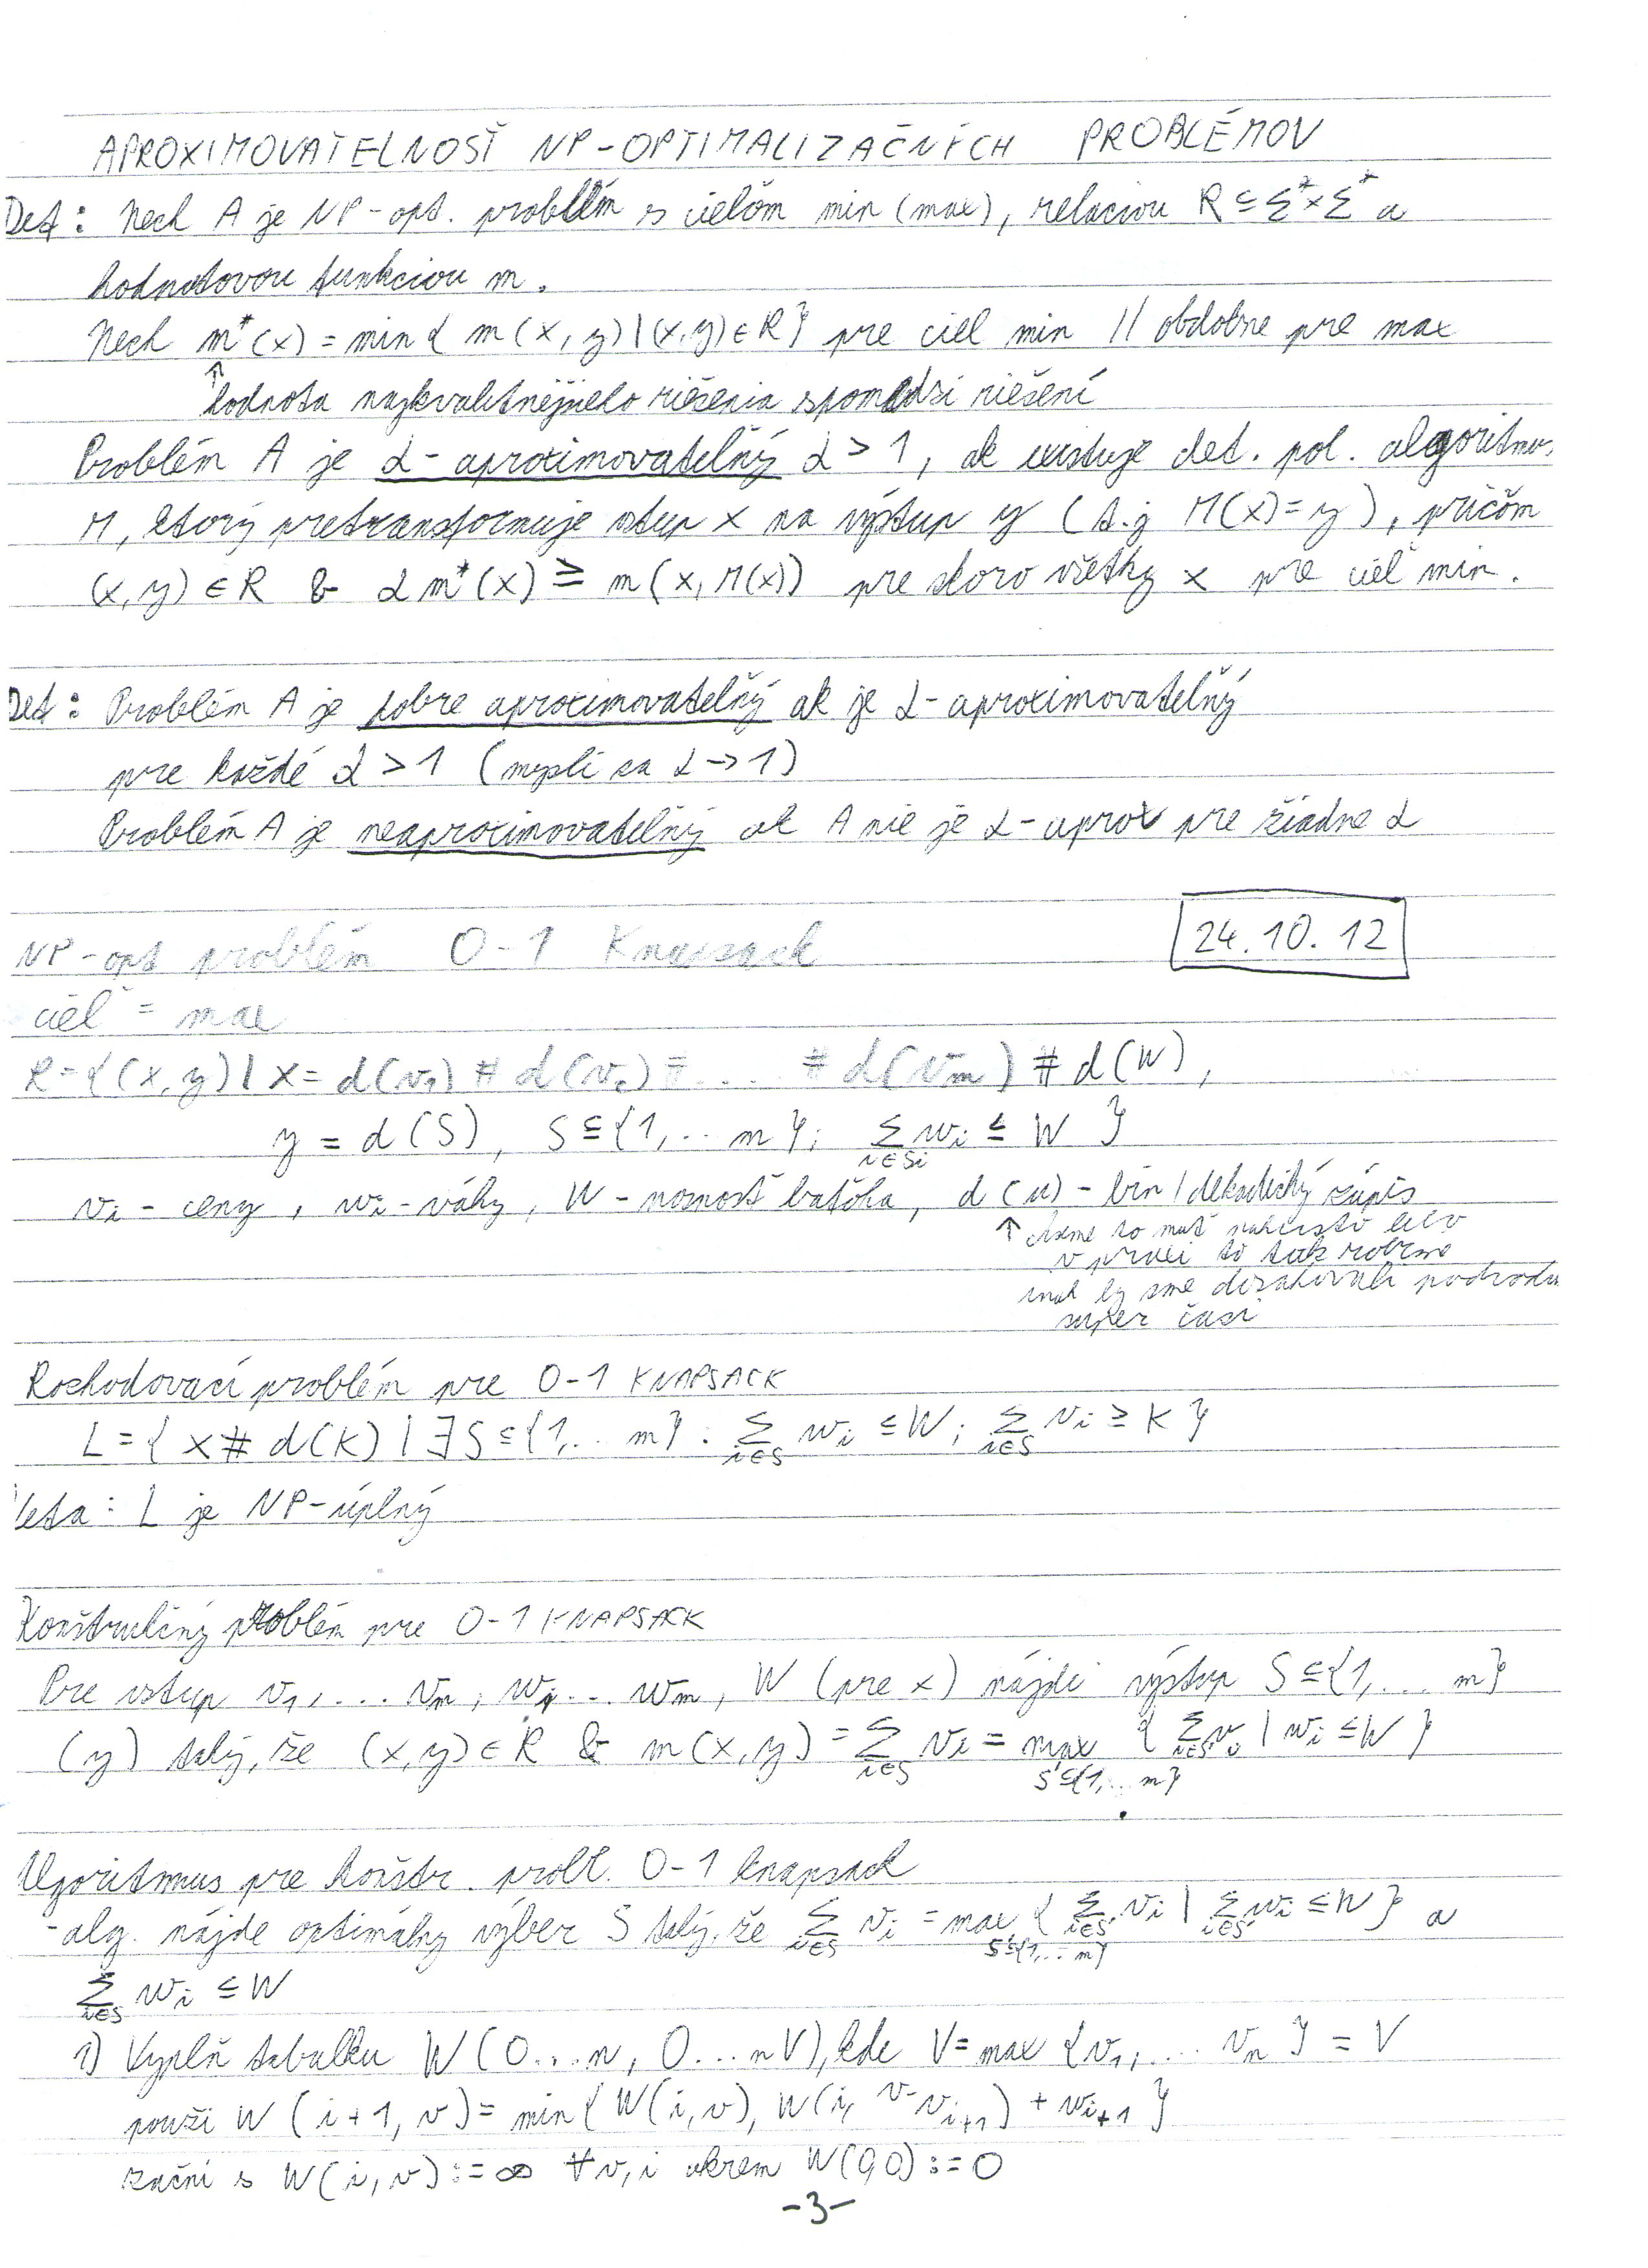 APROXIMOVATEĽNOSŤ NP-OPTIMALIZAČNÝCH PROBLÉMOV
Def: Nech A je NP-opt. problém s cieľom min (max), relaciou R ⊆ Σ* × Σ* a
hodnotovou funkciou m.
Nech m*(x) = min { m(x,y) | (x,y) ∈ R } pre ciel min // obdobne pre max
↑ hodnota najkvalitnejšieho riešenia spomedzi riešení
Problém A je α-aproximovateľný α > 1, ak existuje det. pol. algoritmus
M, ktorý pretransformuje vstup x na výstup y (t.j M(x)=y), pričom
(x,y) ∈ R & α m*(x) ≥ m(x, M(x)) pre skoro všetky x pre cieľ min.
Def: Problém A je dobre aproximovateľný ak je α-aproximovateľný
pre každé α > 1 (myslí sa α → 1)
Problém A je neaproximovateľný ak A nie je α-aprox pre žiadne α
24.10.12
NP-opt problém 0-1 Knapsack
cieľ = max
R = { (x,y) | x = d(v₁) # d(v₂) # .... # d(vₙ) # d(W),
y = d(S), S ⊆ {1,.. n}; Σ_{i∈S} wᵢ ≤ W }
vᵢ - ceny, wᵢ - váhy, W - nosnosť batoha, d(u) - bin/dekadický zápis
↑ chceme to mať
v praxi to tak robíme
inak by sme dosahovali podvodn
super časi
Rozhodovací problém pre 0-1 KNAPSACK
L = { x # d(K) | ∃ S ⊆ {1,.. n} : Σ_{i∈S} wᵢ ≤ W; Σ_{i∈S} vᵢ ≥ K }
Veta: L je NP-úplný
Konštrukčný problém pre 0-1 KNAPSACK
Pre vstup v₁,... vₙ, w₁... wₙ, W (pre x) nájdi výstup S ⊆ {1,... n}
(y) taký, že (x,y) ∈ R & m(x,y) = Σ_{i∈S} vᵢ = max_{S'⊆{1,.. n}} { Σ_{i∈S'} vᵢ | wᵢ ≤ W }
Algoritmus pre konštr. probl. 0-1 knapsack
- alg. nájde optimálny výber S taký, že Σ_{i∈S} vᵢ = max_{S'⊆{1,.. n}} { Σ_{i∈S'} vᵢ | Σ_{i∈S'} wᵢ ≤ W } a
Σ_{i∈S} wᵢ ≤ W
1) Vyplň tabuľku W(0...n, 0...nV), kde V = max {v₁,.... vₙ} = V
použi W(i+1, v) = min { W(i,v), W(i, v-vᵢ₊₁) + wᵢ₊₁ }
začni s W(i,v) := ∞ ∀v,i okrem W(0,0) := 0
-3-